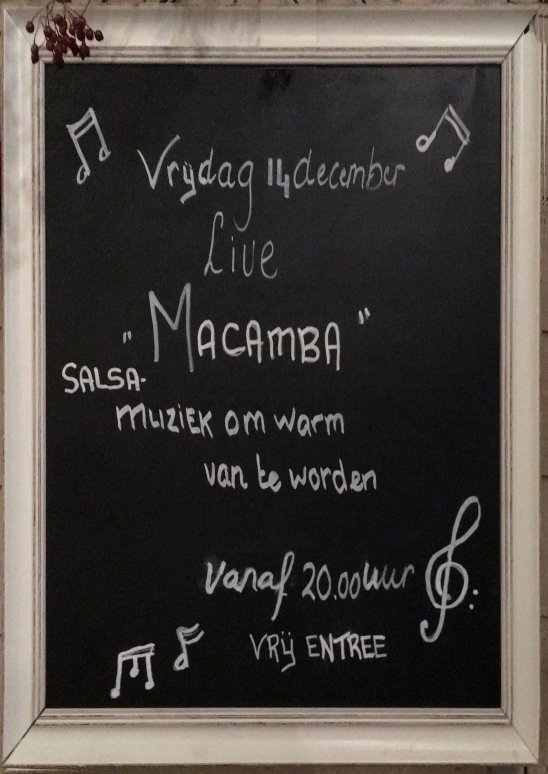 Vrijdag 14 december
Live
"MACAMBA"
SALSA-
MUZIEK om warm
van te worden
vanaf 20.00 uur
VRIJ ENTREE